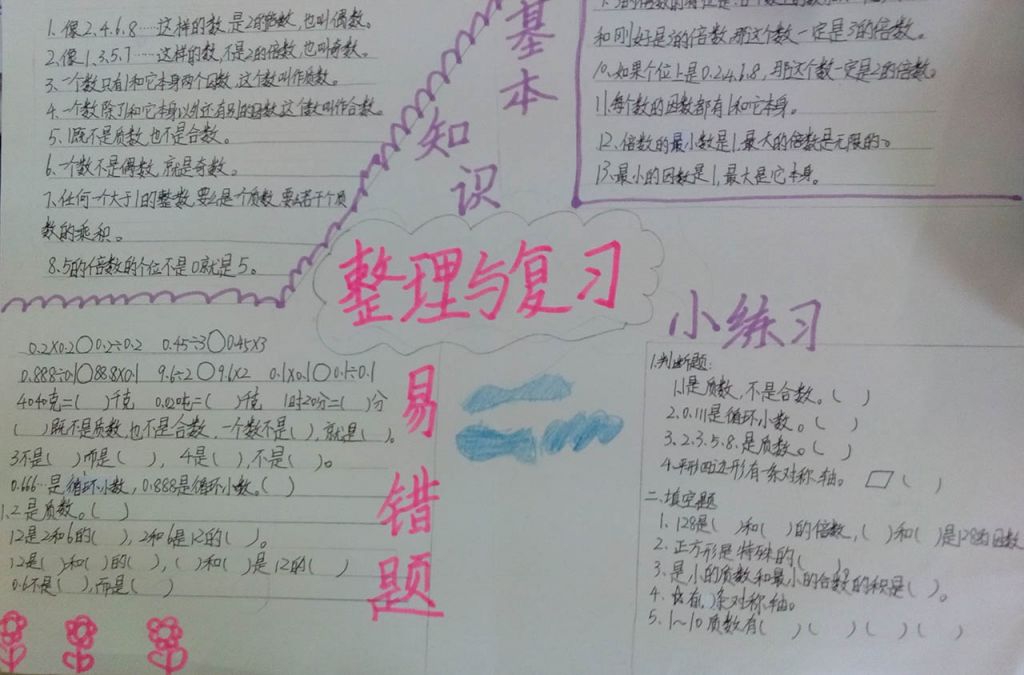 1.像2.4.6.8……这样的数是2的倍数,也叫偶数。
2.像1.3.5.7……这样的数,不是2的倍数,也叫奇数。
3.一个数只有1和它本身两个因数,这个数叫作质数。
4.一个数除了1和它本身以外还有别的因数,这个数叫作合数。
5.1既不是质数,也不是合数。
6.一个数不是偶数,就是奇数。
7.任何一个大于1的整数,要么是一个质数,要么若干个质
数的乘积。
8.5的倍数的个位不是0就是5。
基本
知识
和刚好是3的倍数,那这个数一定是3的倍数。
10.如果个位上是0.2.4.6.8,那这个数一定是2的倍数。
11.每个数的因数都有1和它本身。
12.倍数的最小数是1,最大的倍数是无限的。
13.最小的因数是1,最大是它本身。
整理与复习
易错题
0.2×0.2○0.2÷0.2 0.45÷3○0.45×3
0.888÷0.1○88.8×0.1 9.6÷2○9.6×2 0.1×0.1○0.1÷0.1
4040克=( )千克 0.020吨=( )千克 1时20分=( )分
( )既不是质数,也不是合数,一个数不是( ),就是( )。
3不是( )而是( ), 4是( ),不是( )。
0.666…是循环小数,0.888是循环小数。( )
1.2是质数。( )
12是2和6的( ),2和6是12的( )。
12是( )和( )的( ),( )和( )是12的( )
0.6不是( ),而是( )
小练习
1.判断题:
1.1是质数,不是合数。( )
2.0.111是循环小数。( )
3.2.3.5.8.是质数。( )
4.平形四边形有一条对称轴。 ( )
二.填空题
1.128是( )和( )的倍数,( )和( )是128的因数
2.正方形是特殊的( )
3.是小的质数和最小的合数的积是( )。
4. 有( )条对称轴。
5.1~10质数有( )( )( )( )